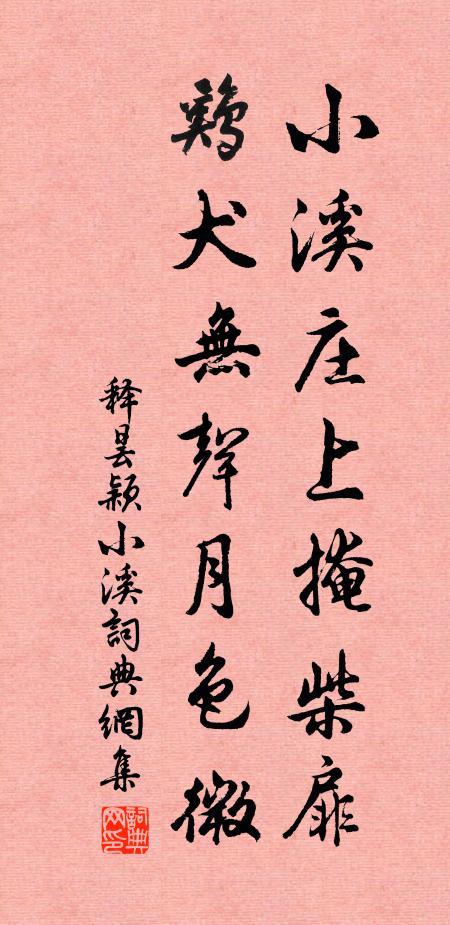 小溪庄上掩柴扉
鷄犬無聲月色微
释昙颖小溪詞典網集
詞典网印